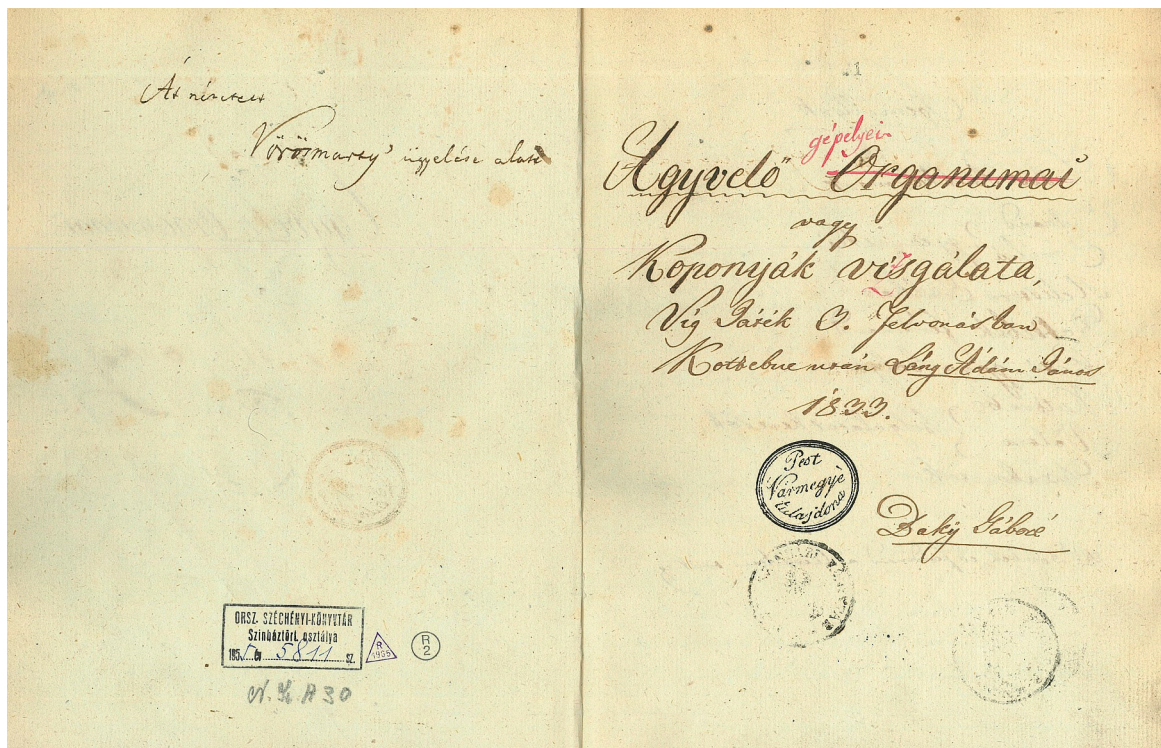 Át nézetett
Vörösmarty' ügyelése alatt
ORSZ. SZÉCHÉNYI-KÖNYVTÁR
Színháztört. osztálya
195 5 év 5811 sz.
R
1955
R
2
N. Sz. A 30
1
gépelyei
Agyvelő" Organumai
vagy
Koponyák visgálata,
Víg Játék 3. felvonásban
Kotzebue után Láng Ádám János
1833.
Pest
Vármegyè
tulajdona
Daký Gáboré